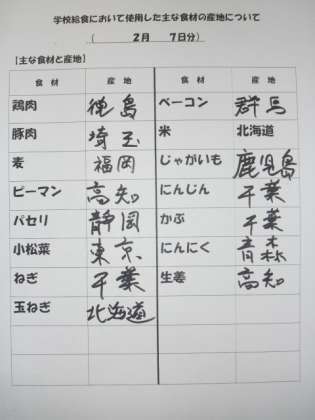 学校給食において使用した主な食材の産地について
( 2月 7日分)
【主な食材と産地】
食材 産地 食材 産地
鶏肉 徳島 ベーコン 群馬
豚肉 埼玉 米 北海道
麦 福岡 じゃがいも 鹿児島
ピーマン 高知 にんじん 千葉
パセリ 静岡 かぶ 千葉
小松菜 東京 にんにく 青森
ねぎ 千葉 生姜 高知
玉ねぎ 北海道